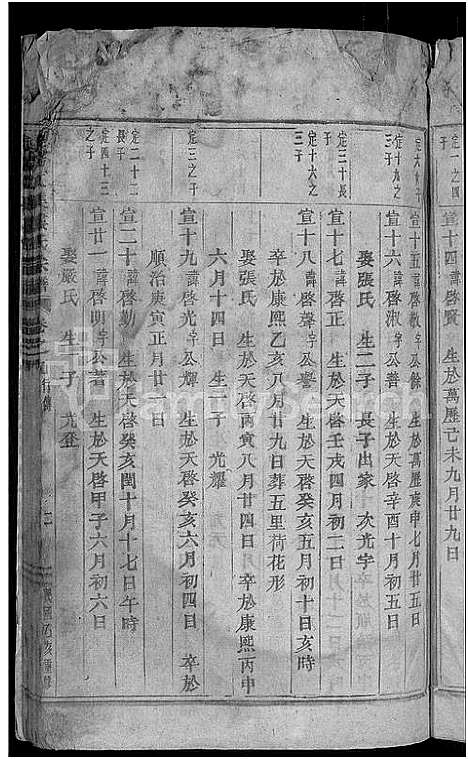 定一之四子
宣十四 諱啓賢 生於萬歷己未九月廿九日
宣十五 諱啓 字公餘 生於萬歷庚申七月廿五日
定十九之三子
宣十六 諱啓淑 字公善 生於天啓辛酉十月初五日
娶張氏 生二子 長子出家 次光宇
定三十長子
宣十七 諱啓正 生於天啓壬戌四月初二日
定十六之三子
宣十八 諱啓聲 字公譽 生於天啓癸亥五月初十日亥時
卒於康熙乙亥八月廿九日葬五里荷花形
娶張氏 生於天啓丙寅八月廿四日 卒於康熙丙申
六月十四日 生一子 光耀
定三之子
宣十九 諱啓光 字公輝 生於天啓癸亥六月初四日 卒於
順治庚寅正月廿一日
定二十二長子
宣二十 諱啓勤 生於天啓癸亥閏十月十七日午時
定四十三之子
宣廿一 諱啓明 字公著 生於天啓甲子六月初六日
娶嚴氏 生一子 光
氏宗譜 卷 行傳 民國乙亥重修